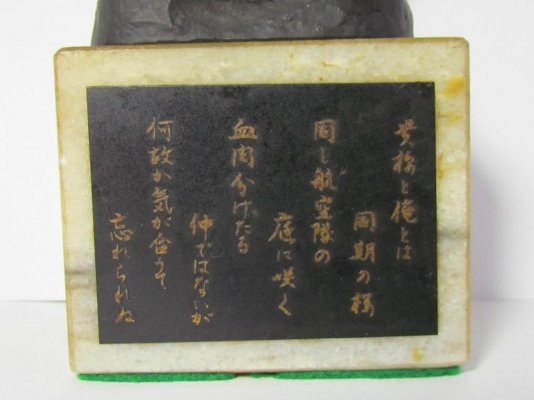 貴様と俺とは
同期の桜
同じ航空隊の
庭に咲く
血肉分けたる
仲ではないが
何故か気が合うて
忘れられぬ